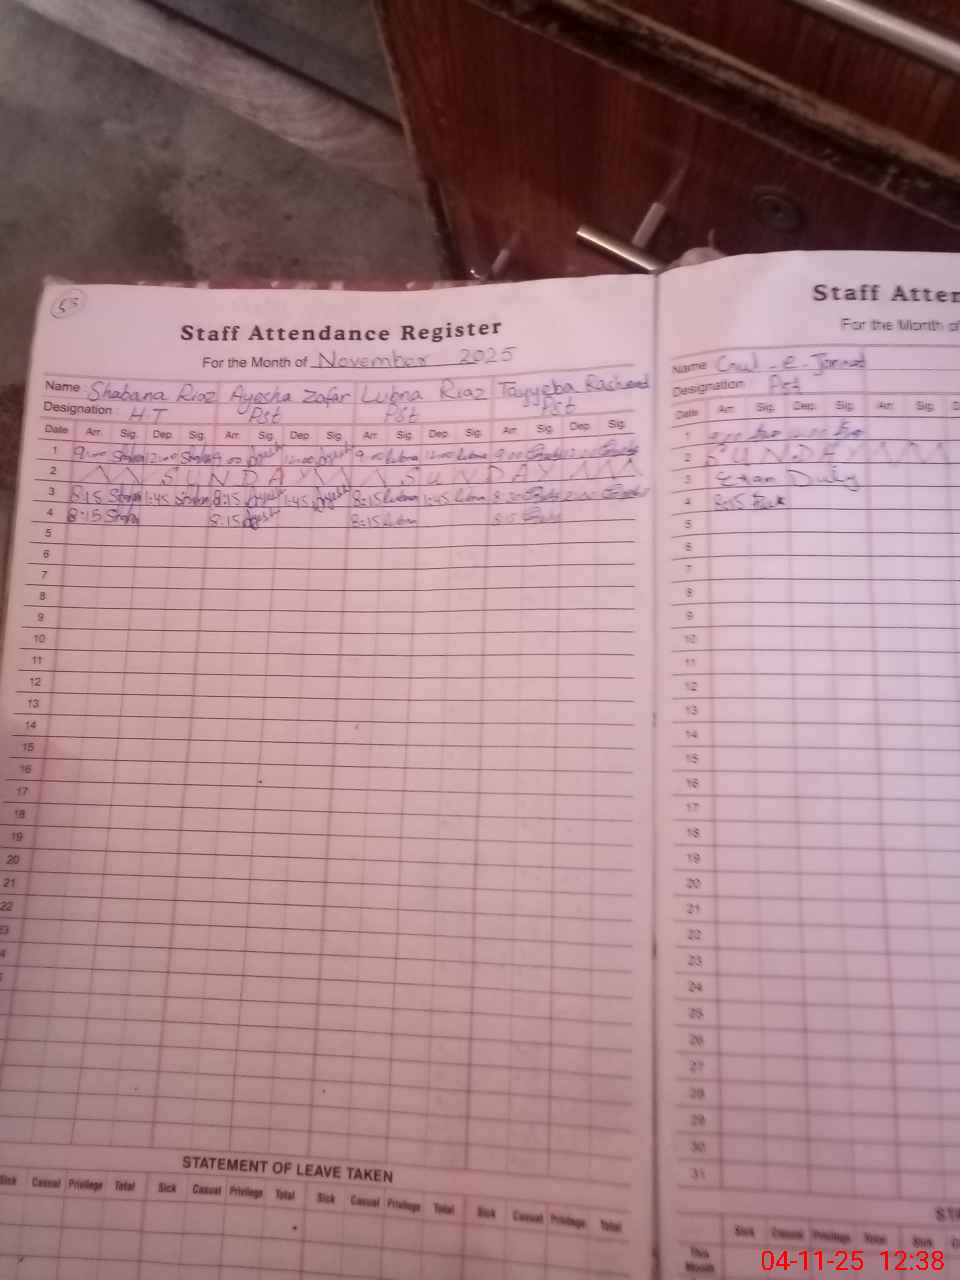 53
Staff Attendance Register
For the Month of November 2025
Name : Shabana Riaz Ayesha Zafar Lubna Riaz Tayyeba Rasheed
Designation : H.T Pst Pst Pst
Date Arr. Sig. Dep. Sig. Arr. Sig. Dep. Sig. Arr. Sig. Dep. Sig. Arr. Sig. Dep. Sig.
1 9:00 12:00 9:00 12:00 9:00 12:00 9:00
2 SUNDAY SUNDAY
3 8:15 1:45 8:15 1:45 8:15 1:45
4 8:15 8:15 8:15 8:15
5
6
7
8
9
10
11
12
13
14
15
16
17
18
19
20
21
22
STATEMENT OF LEAVE TAKEN
Sick Casual Privilege Total Sick Casual Privilege Total Sick Casual Privilege Total Sick Casual Privilege Total
Staff Atten
For the Month of
Name
Designation Pst
Date Arr. Sig. Dep. Sig. Arr. Sig. D
1
2 SUNDAY
3 Exam Duty
4 8:15
5
6
7
8
9
10
11
12
13
14
15
16
17
18
19
20
21
22
23
24
25
26
27
28
29
30
31
STA
Sick Casual Privilege Total Sick C
This
Month
04-11-25 12:38